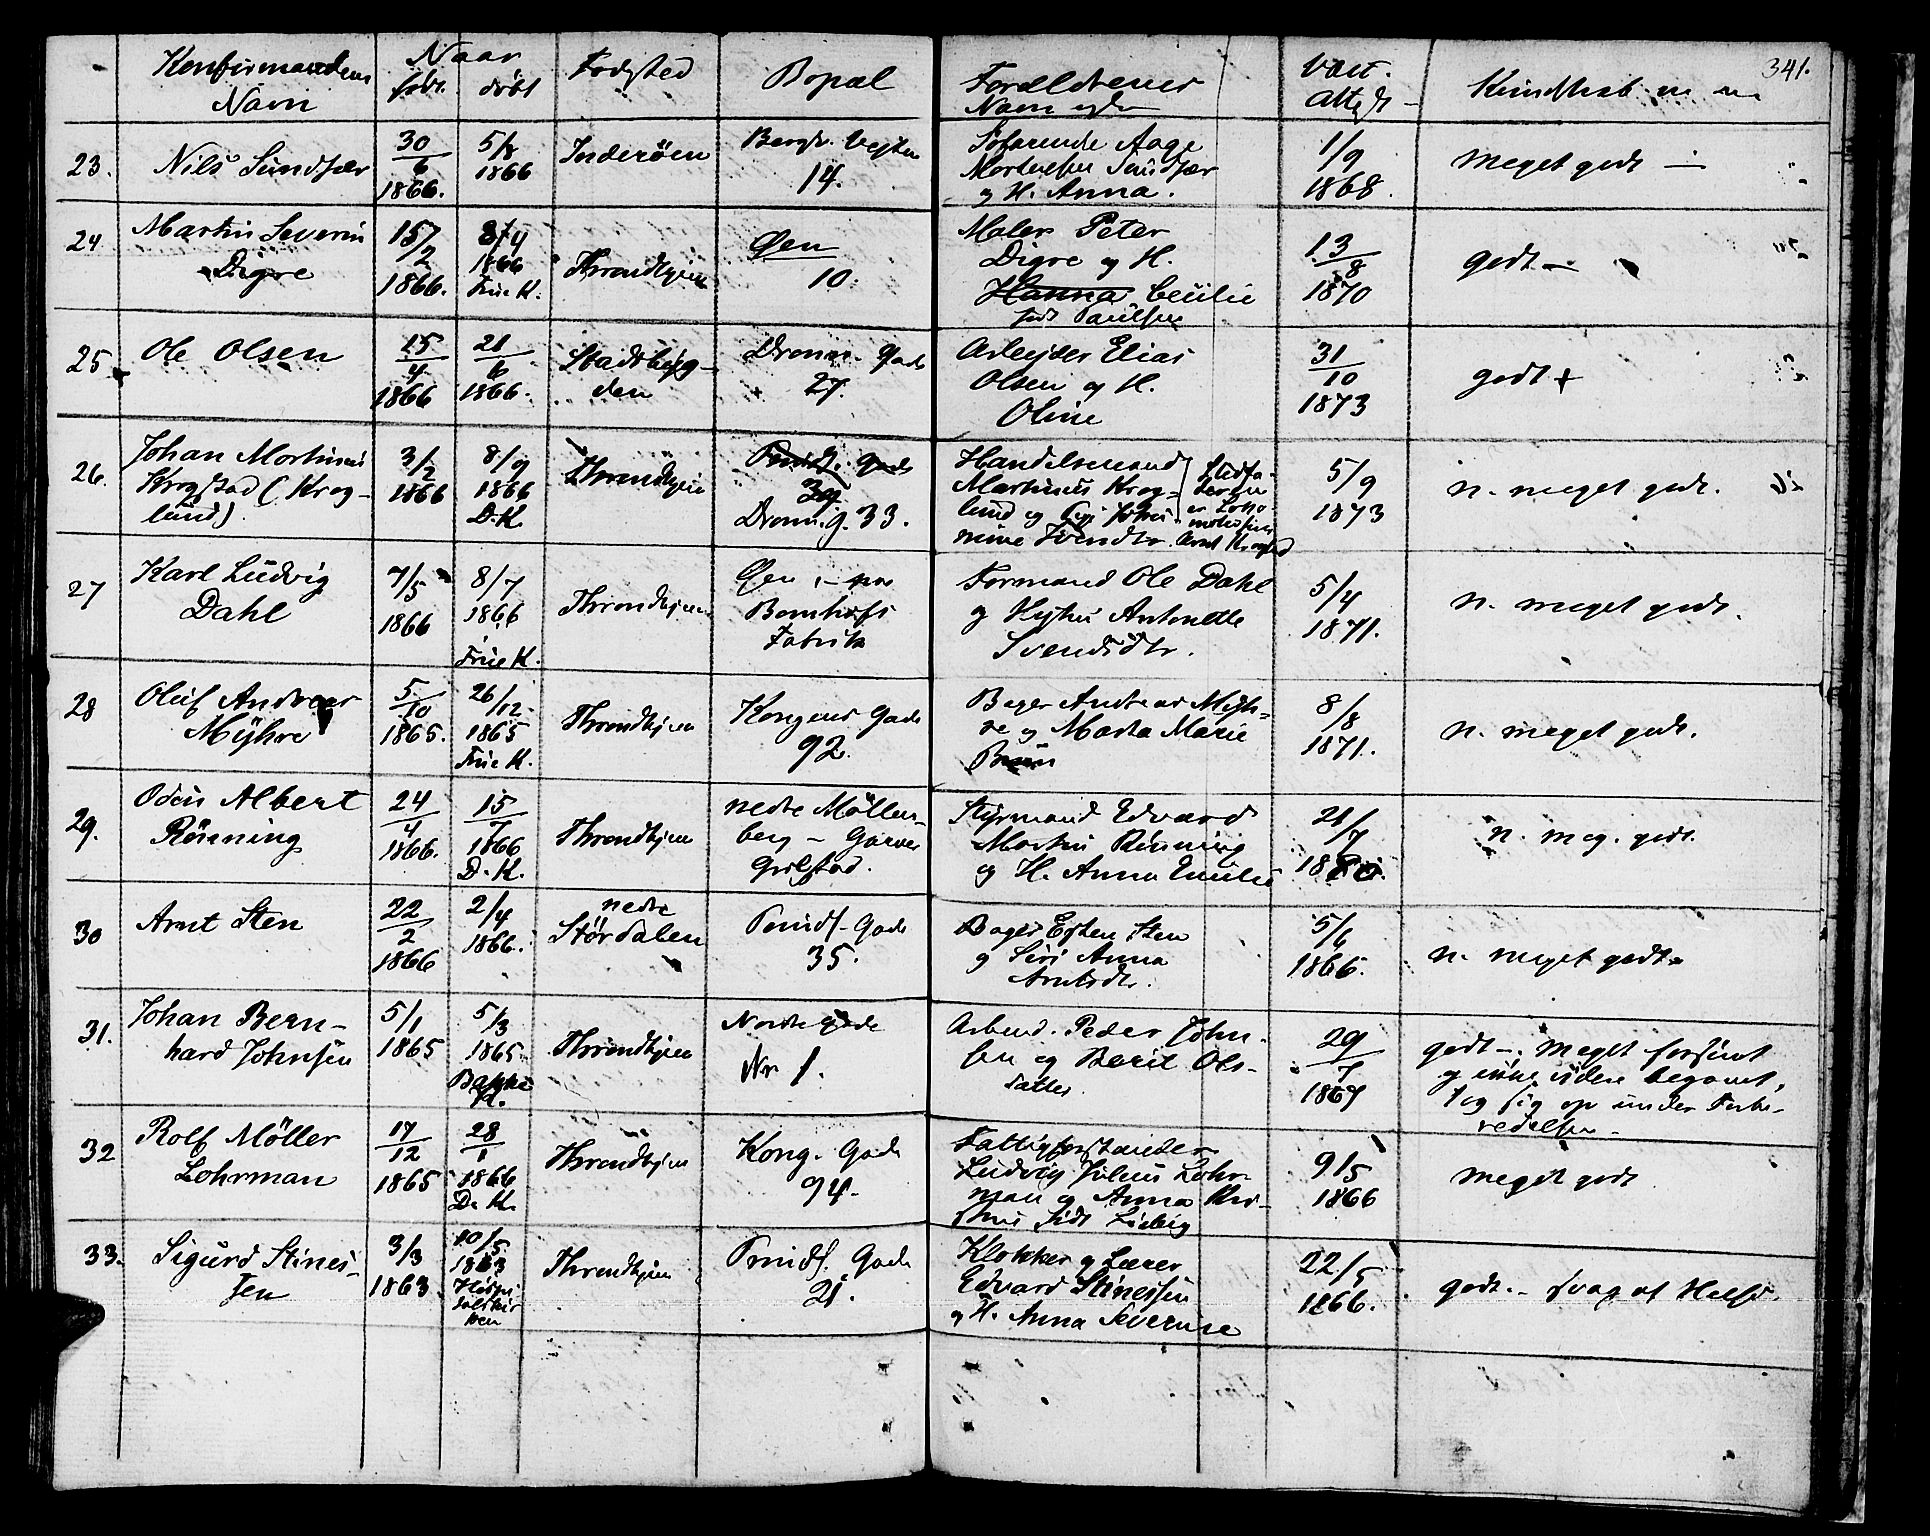 341.
Konfirmandens Navn
Naar
født
døbt
Fødested
Bopæl
Forældrenes
Navn
Vacc.
Attest
Kundskab
23. Nils Sundfær
30/6 1866.
5/8 1866
Inderöen
14.
Søfarende Aage
Mortensen Sundfær
og H. Anna.
1/9 1868.
Meget godt —
24 Martin Severin
Digre
15/2 1866.
8/4 1866
Frue K.
Throndhjem
Øen
10.
Maler Peter
Digre og H.
Hanna Cecilie
født Paulsen
13/8 1870
godt —
25 Ole Olsen
15/4 1866
21/6 1866.
Stadsbyg-
den
Dronn. Gade
27.
Arbejder Elias
Olsen og H.
Oline
31/10 1873
godt +
26. Johan Martinus
Krogstad (Krog-
lund).
3/2 1866
8/9 1866
D. K.
Throndhjem
Prinds. Gade
39
Dronn. g. 33.
Handelsmand
Martinus Krog-
lund og
Stedfa-
deren
er Loko-
motivfører
Arnt Krogstad
5/9 1873
n. meget godt.
27 Karl Ludvig
Dahl
7/5 1866
8/7 1866
Frue K.
Throndhjem
Øen, — paa
Fabrik
Formand Ole Dahl
og Hustru Antonette
Svendsdtr.
5/4 1871.
n. meget godt.
28 Oluf Andreas
Myhre
5/10 1865.
26/12 1865
Frue K.
Throndhjem
Kongens Gade
92.
Bager Andreas Myh-
re og Marta Marie
Bruun
8/8 1871.
n. meget godt.
29. Odin Albert
Rönning
24/4 1866.
15/7 1866
D. K.
Throndhjem
nedre Möllen-
berg — Garver
Grilstad.
Styrmand Edvard
Martin Rönning
og H. Anna Emilie
21/7 1880.
n. meg. godt.
30 Arnt Sten
22/2 1866
2/4 1866.
nedre
Stördalen
Prinds. Gade
35.
Bager Esten Sten
og Siri Anna
Arntsdtr.
5/6 1866.
n. meget godt.
31. Johan Bern-
hard Johnsen
5/1 1865
5/3 1865
Bakke
K.
Throndhjem
Nordregade
Nr 1.
Arbmd. Peder John-
sen og Berit Ols-
datter
29/7 1867
godt —. Meget forsømt
og ikke videre begavet,
tog sig op under Forbe-
redelsen —
32 Rolf Möller
Lohrman
17/12 1865
28/1 1866
D. K.
Throndhjem
Kong. Gade
94.
Fattigforstander
Ludvig Julius Lohr-
man og Anna Kri-
stine født Ludvig
9/5 1866
meget godt
33. Sigurd Stines-
sen
3/3 1863.
10/5 1863
Hospi-
talskir
ken
Throndhjem
Prinds. Gade
21.
Klokker og Lærer
Edvard Stinessen
og H. Anna Severine
22/5 1866.
godt. — svag af Helse.